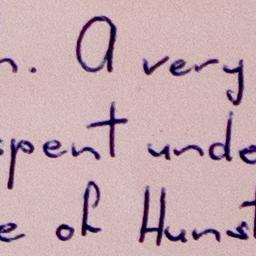 n. A very
spent unde
e of Hunst